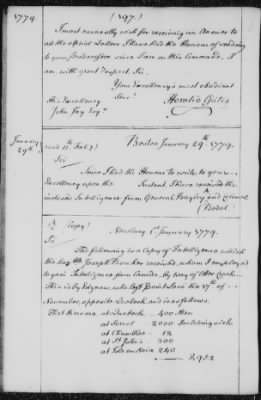 1779.
(397.)
I most earnestly wish for receiving an Answer to
all the official Letters I have had the Honour of sending
to your predecessor, since I am on this Command. I
am with great respect, Sir,
Your Excellency's most obedient
His Excellency
Horatio Gates
John Jay Esqr
January 29th
Boston January 29th 1779.
Sir
Since I had the Honour to write to your
Excellency upon the Instant, I have received the
inclosed Intelligence from General Bayley and Colonel
(Copy)
Newbury 1st January 1779.
Sir
The following is a Copy of Intelligence which
has received, whom I employed
to gain Intelligence from Canada, by way of Otter Creek
This is by who left Point Levi the 27th of
November, opposite Quebeck and is as follows.
That there are, at Quebeck, 400 Men
at Sorrel 2000 Including
at Chamblee 12
at St Johns 300
at 240
2,952